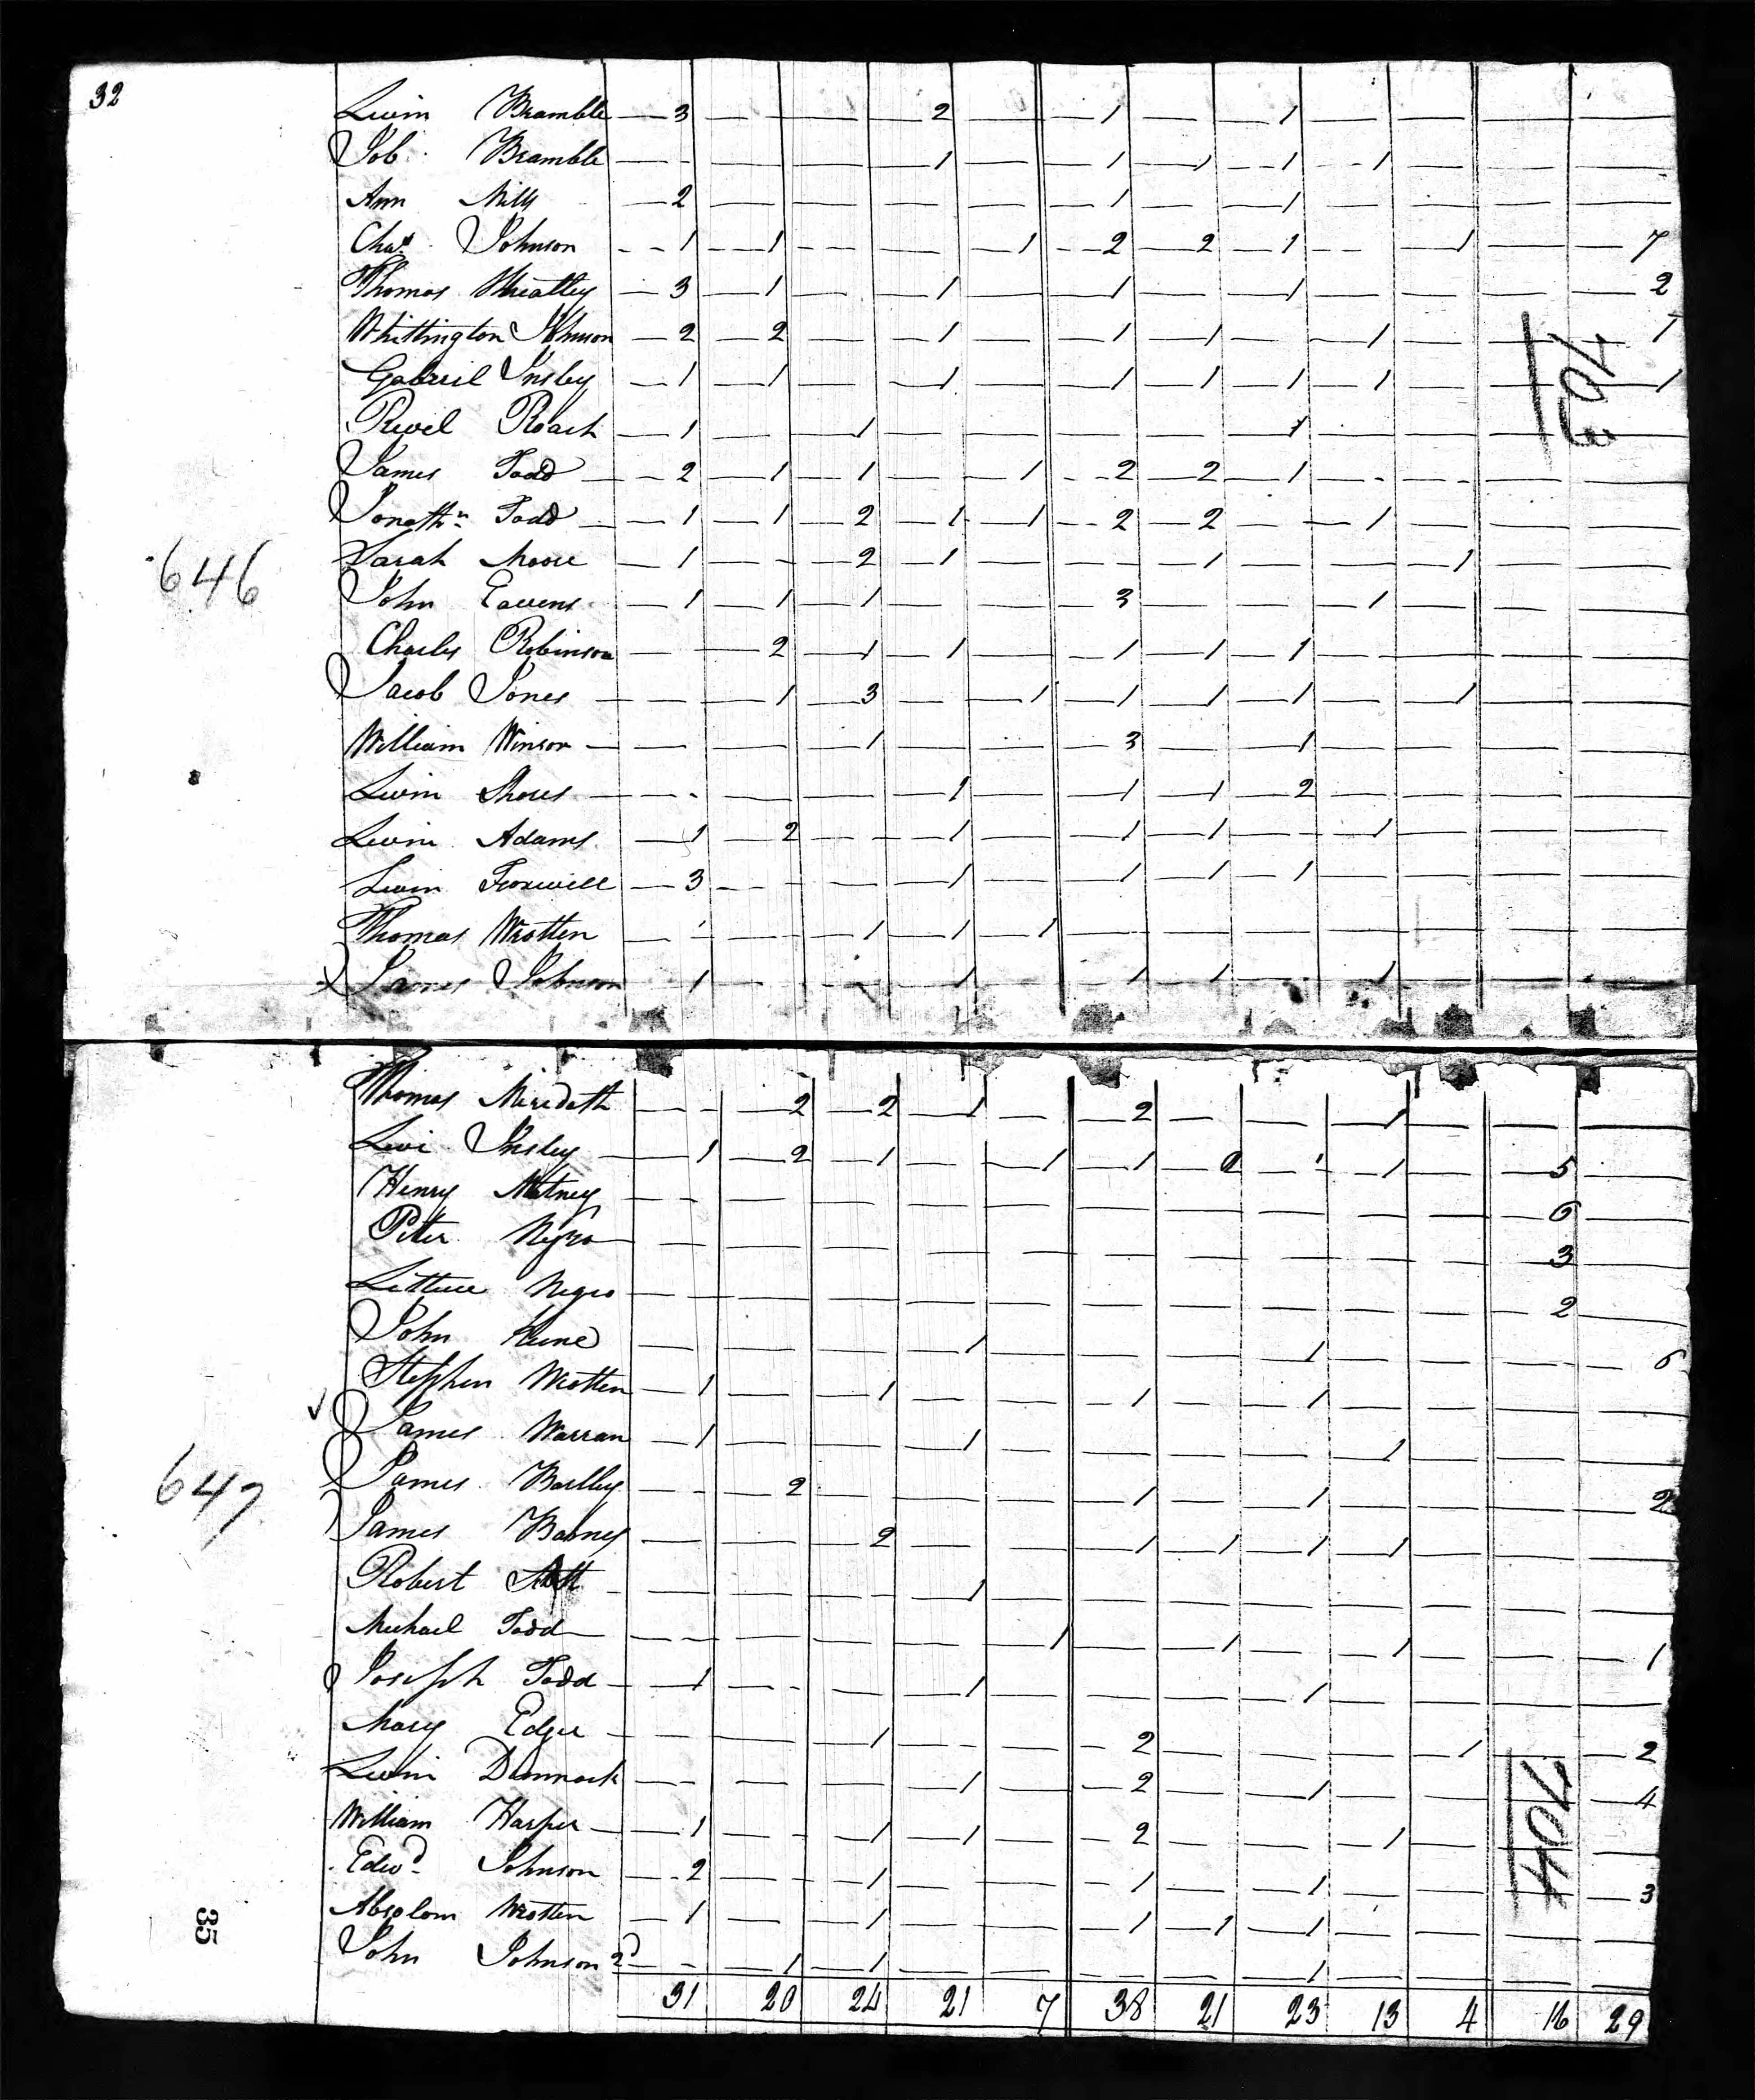 32
Levin Bramble — 3 — — — 2 — — 1 — — 1 — — — —
Job Bramble — — — — 1 — — 1 — 1 — 1 — 1 — — —
Ann Mills — 2 — — — — — 1 — — 1 — — — —
Chas. Johnson — 1 — 1 — — — 1 — 2 — 2 — 1 — — 1 — — 7
Thomas Wheatley — 3 — 1 — — 1 — — 1 — — 1 — — — — 2
Whittington Johnson — 2 — 2 — — 1 — — 1 — 1 — — 1 — — — 1
Gabriel Insley — 1 — 1 — — 1 — — 1 — 1 — 1 — 1 — — — 1
703
Revel Roach — 1 — — 1 — — — — — 1 — — — —
James Todd — 2 — 1 — 1 — — 1 — 2 — 2 — 1 — — — —
Jonathn. Todd — 1 — 1 — 2 — 1 — 1 — 2 — 2 — — 1 — — —
646
Sarah Moore — 1 — — 2 — 1 — — — 1 — — — 1 — —
John Eavens — 1 — 1 — 1 — — — 3 — — — 1 — — —
Charles Robinson — — 2 — 1 — 1 — — 1 — 1 — 1 — — — —
Jacob Jones — — 1 — 3 — — 1 — 1 — 1 — 1 — — 1 — —
William Winsor — — — 1 — — — 3 — — 1 — — — —
Levin Shores — — — — 1 — — 1 — 1 — 2 — — — —
Levin Adams — 1 — 2 — — 1 — — 1 — 1 — — 1 — — —
Levin Foxwell — 3 — — — 1 — — 1 — 1 — 1 — — — —
Thomas Wrotten — — — 1 — 1 — 1 — — — — — — —
James Johnson — 1 — — — 1 — — 1 — 1 — — 1 — — —
Thomas Meridath — — 2 — 2 — 1 — — 2 — — — 1 — — —
Levi Insley — 1 — 2 — 1 — — 1 — 1 — — 1 — 1 — — 5
Henry — — — — — — — — — — 6 —
Peter Negro — — — — — — — — — — 3
Lettuce Negro — — — — — — — — — — 2
John Keene — — — — 1 — — — — 1 — — — 6
Stephen Wrotten — 1 — — 1 — — — 1 — — 1 — — — —
James Warran — 1 — — — 1 — — — — — 1 — — —
James Bailley — — 2 — — — — 1 — — 1 — — — — 2
647
James — — — 2 — — — 1 — 1 — 1 — 1 — — —
Robert — — — — 1 — — — — — — — —
Michael Todd — — — — — 1 — — 1 — — 1 — — — 1
Joseph Todd — 1 — — — 1 — — — — 1 — — — —
Mary Edger — — — 1 — — — 2 — — — — 1 — — 2
Levin Dunnock — — — — 1 — — 2 — — 1 — — — — 4
704
William Harper — 1 — — 1 — 1 — — 2 — — — 1 — — —
Edwd. Johnson — 2 — — 1 — — — 1 — — 1 — — — — 3
Absolom Wrotten — 1 — — 1 — — — 1 — 1 — 1 — — — —
35
John Johnson 2d — — 1 — 1 — — — — — 1 — — — —
31 20 24 21 7 38 21 23 13 4 16 29